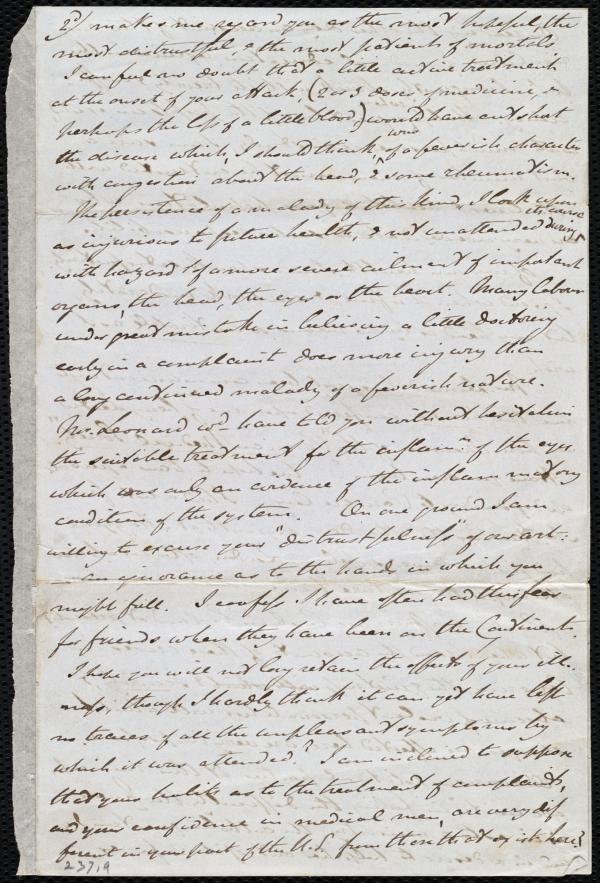 2d/ makes me regard you as the most hopeful, the
most distrustful & the most patient of mortals
I can feel no doubt that a little active treatment
at the onset of your attack, (2 or 3 doses of medicine, &
perhaps the loss of a little blood,) would have cut short
the disease which, I should think, was of a feverish character
with congestion about the head, & some rheumatism.
The persistence of a malady of this kind, I look upon
as injurious to future health, & not unattended during its course
with hazard of a more severe ailment of important
organs, the head, the eyes or the heart. Many labour
under great mistake in believing a little doctoring
early in a complaint does more injury than
a long continued malady of a feverish nature.
Mr. Leonard wd have told you without hesitation
the suitable treatment for the inflamn. of the eyes
which was only an evidence of the inflammatory
condition of the system. On one ground I am
willing to excuse your "distrustfulness" of our art:
— an ignorance as to the hands in which you
might fall. I confess I have often had this fear
for friends when they have been on the Continent.
I hope you will not long retain the effects of your ill-
ness, though I hardly think it can yet have left
no traces of all the unpleasant symptoms by
which it was attended? I am inclined to suppose
that your habits as to the treatment of complaints,
and your confidence in medical men, are very dif
ferent in your part of the U.S. from those that exist here?
237,9